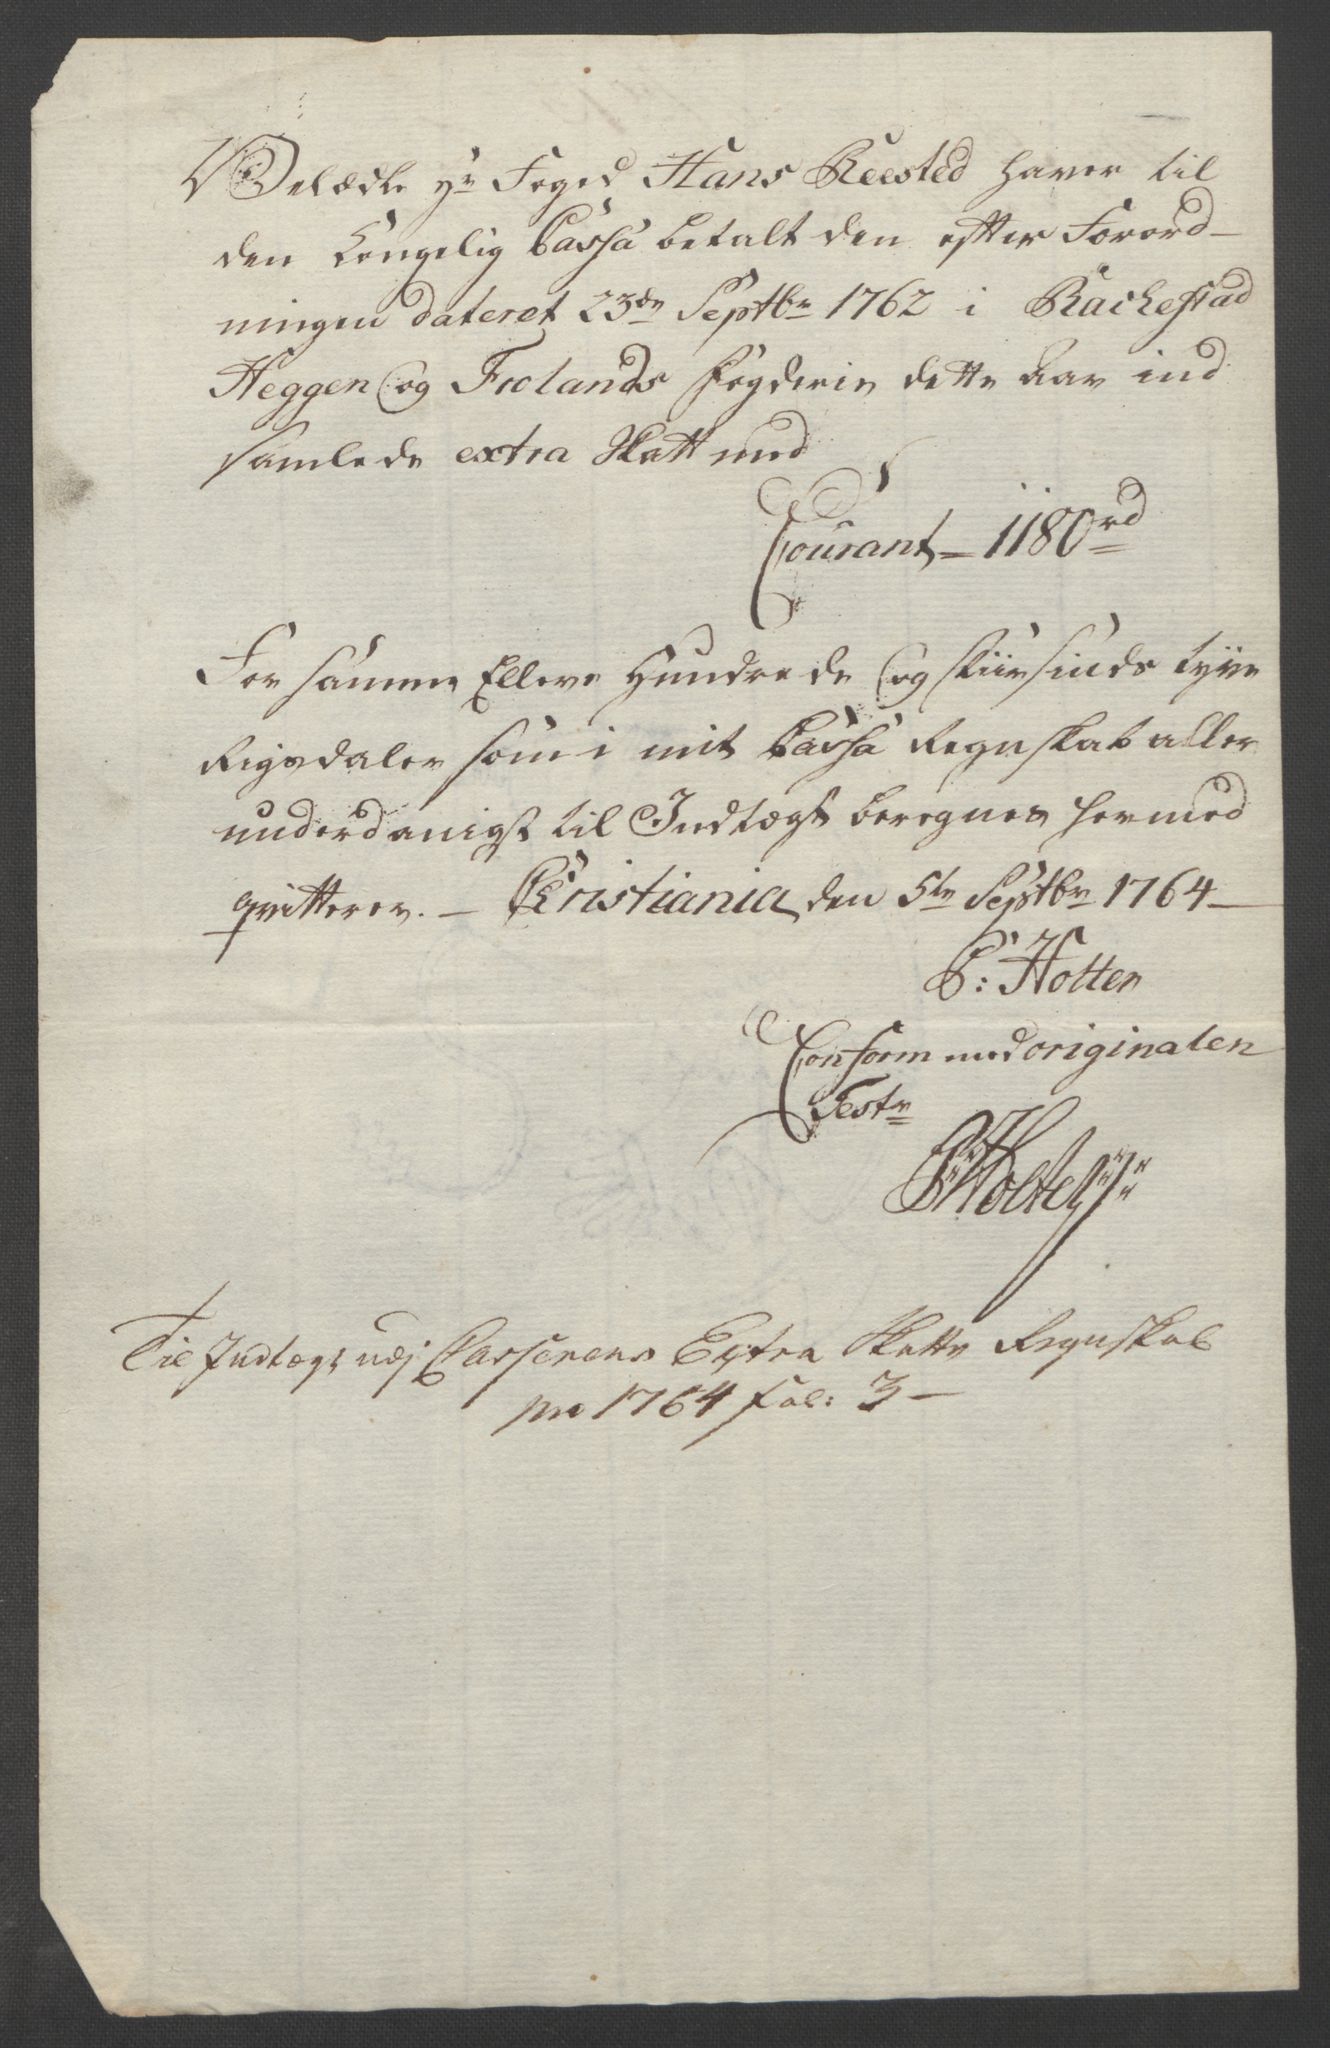 Velædle Hr Foged Hans Reested haver til
den Kongelig Cassa betalt den efter Forord-
ningen dateret 23de Septbr 1762 i Rachestad
Heggen og Frolands Fogderie dette Aar ind
samlede extra Skatt med
Courant - 1180 rd
For samme Elleve Hundrede og fiirsinds tyve
Rigsdaler som i mit Cassa Regnskab aller
underdanigst til Indtægt beregnes hermed
qvitterer. - Christiania den 5te Septbr 1764 -
P: Holter
Conform med originalen
Test
PHolter
Til Indtægt udj Casserens Extra Skatte Regnskab
pro 1764 Fol: 3 -